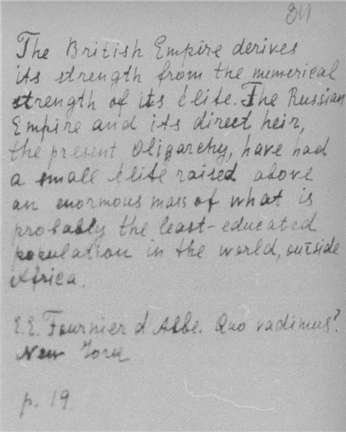 311
The British Empire derives
its strength from the numerical
strength of its élite. The Russian
Empire and its direct heir,
the present Oligarchy, have had
a small élite raised above
an enormous mass of what is
probably the least-educated
population in the world, outside
Africa.
E.E. Fournier d Albe. Quo vadimus?
New York
p. 19.